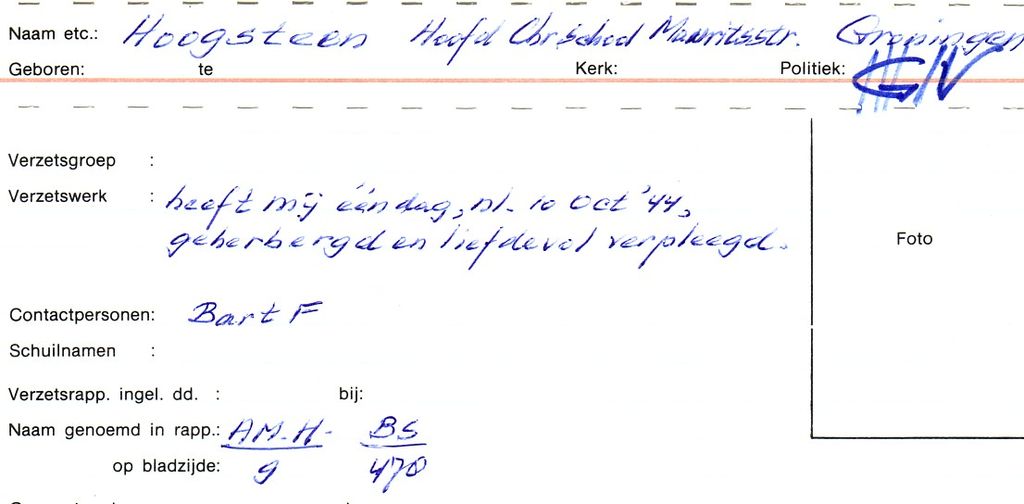 Naam etc.: Hoogsteen Hoofd Chr. School Mauritsstr. Groningen
Geboren: te Kerk: Politiek: GIV
Verzetsgroep :
Verzetswerk : heeft mij ééndag, nl. 10 Oct '44,
geherbergd en liefdevol verpleegd.
Foto
Contactpersonen: Bart F
Schuilnamen :
Verzetsrapp. ingel. dd. : bij:
Naam genoemd in rapp.: AM-H- BS
op bladzijde: 9 470